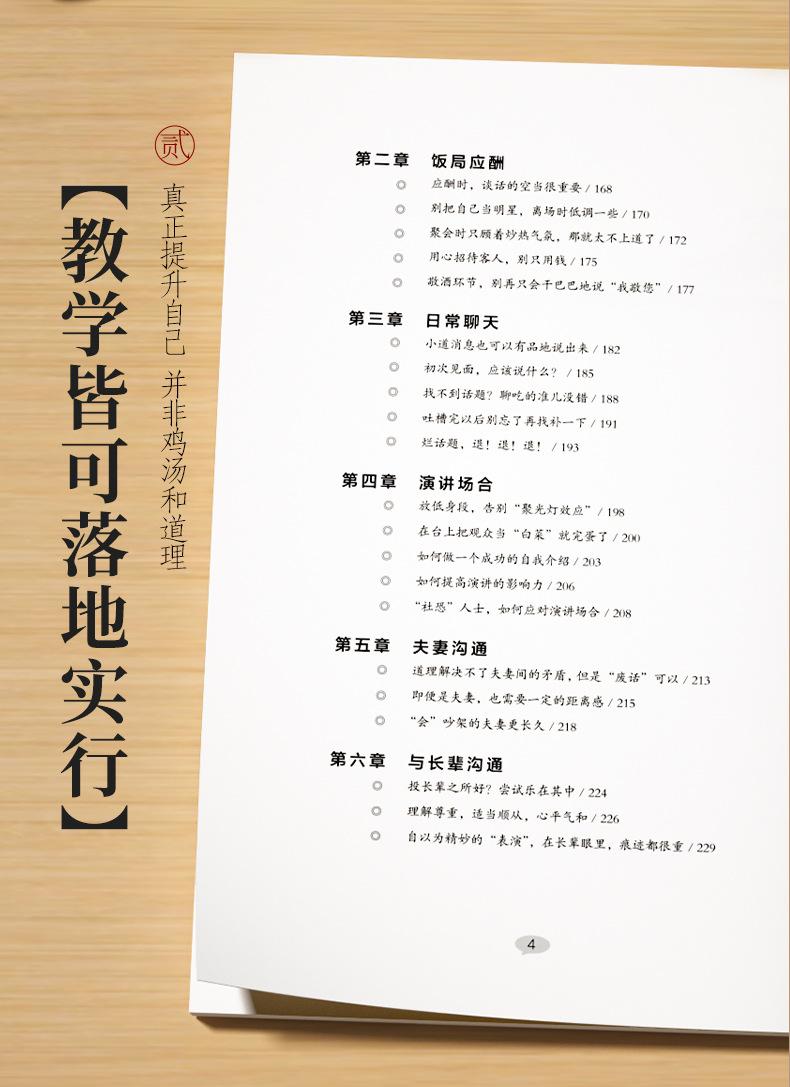 贰
真正提升自己 并非鸡汤和道理
【教学皆可落地实行】
第二章 饭局应酬
应酬时，谈话的空当很重要 / 168
别把自己当明星，离场时低调一些 / 170
聚会时只顾着炒热气氛，那就太不上道了 / 172
用心招待客人，别只用钱 / 175
敬酒环节，别再只会干巴巴地说“我敬您” / 177
第三章 日常聊天
小道消息也可以有品地说出来 / 182
初次见面，应该说什么？ / 185
找不到话题？聊吃的准儿没错 / 188
吐槽完以后别忘了再找补一下 / 191
烂话题，退！退！退！ / 193
第四章 演讲场合
放低身段，告别“聚光灯效应” / 198
在台上把观众当“白菜”就完蛋了 / 200
如何做一个成功的自我介绍 / 203
如何提高演讲的影响力 / 206
“社恐”人士，如何应对演讲场合 / 208
第五章 夫妻沟通
道理解决不了夫妻间的矛盾，但是“废话”可以 / 213
即便是夫妻，也需要一定的距离感 / 215
“会”吵架的夫妻更长久 / 218
第六章 与长辈沟通
投长辈之所好？尝试乐在其中 / 224
理解尊重，适当顺从，心平气和 / 226
自以为精妙的“表演”，在长辈眼里，痕迹都很重 / 229
4